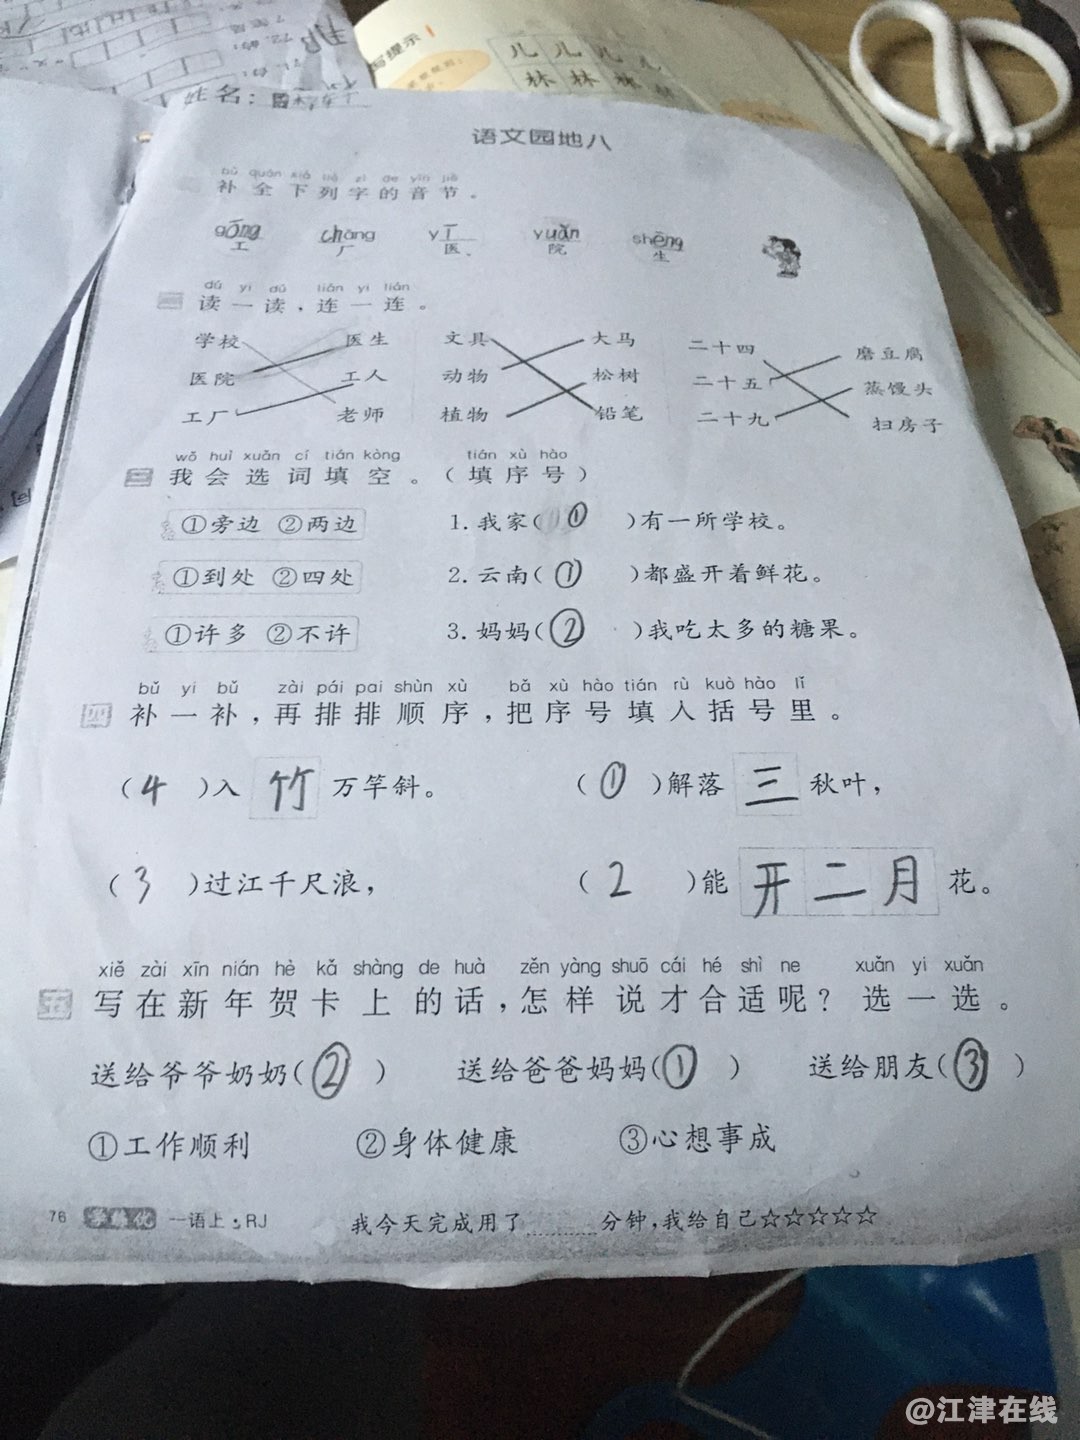 写提示
儿 儿 儿 儿
林 林 林
姓名：
语文园地八
bǔ quán xià liè zì de yīn jié
补全下列字的音节。
gōng chǎng yī yuàn shēng
工 厂 医 院 生
dú yi dú lián yi lián
二 读一读，连一连。
学校 医生 文具 大马 二十四 磨豆腐
医院 工人 动物 松树 二十五 蒸馒头
工厂 老师 植物 铅笔 二十九 扫房子
wǒ huì xuǎn cí tián kòng tián xù hào
三 我会选词填空。（填序号）
①旁边 ②两边 1.我家(① )有一所学校。
①到处 ②四处 2.云南(① )都盛开着鲜花。
①许多 ②不许 3.妈妈(② )我吃太多的糖果。
bǔ yi bǔ zài pái pai shùn xù bǎ xù hào tián rù kuò hào lǐ
四 补一补，再排排顺序，把序号填入括号里。
(4 )入 竹 万竿斜。 (① )解落 三 秋叶，
(3 )过江千尺浪， (2 )能 开二月 花。
xiě zài xīn nián hè kǎ shàng de huà zěn yàng shuō cái hé shì ne xuǎn yi xuǎn
五 写在新年贺卡上的话，怎样说才合适呢？选一选。
送给爷爷奶奶(② ) 送给爸爸妈妈(① ) 送给朋友(③ )
①工作顺利 ②身体健康 ③心想事成
76 学练优 一语上·RJ 我今天完成用了 分钟，我给自己☆☆☆☆☆
@江津在线